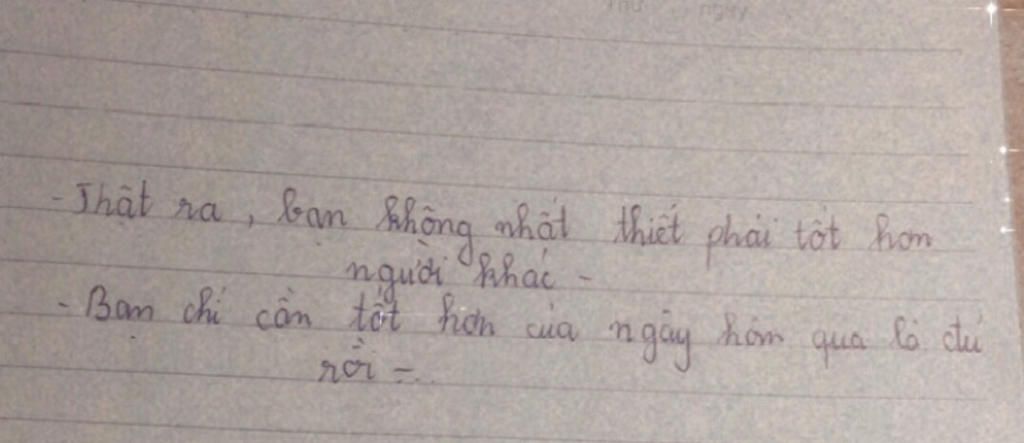 Thứ ngày
- Thật ra, bạn không nhất thiết phải tốt hơn
người khác -
- Bạn chỉ cần tốt hơn của ngày hôm qua là đủ
rồi -...